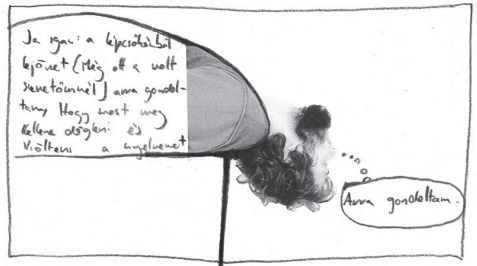 Ja igen: a lépcsőházból
lejövet (Még ott a volt
szeretőimnél) arra gondol-
tam, Hogy most meg
kellene dögleni és
kiölteni a nyelvemet
Arra gondoltam.